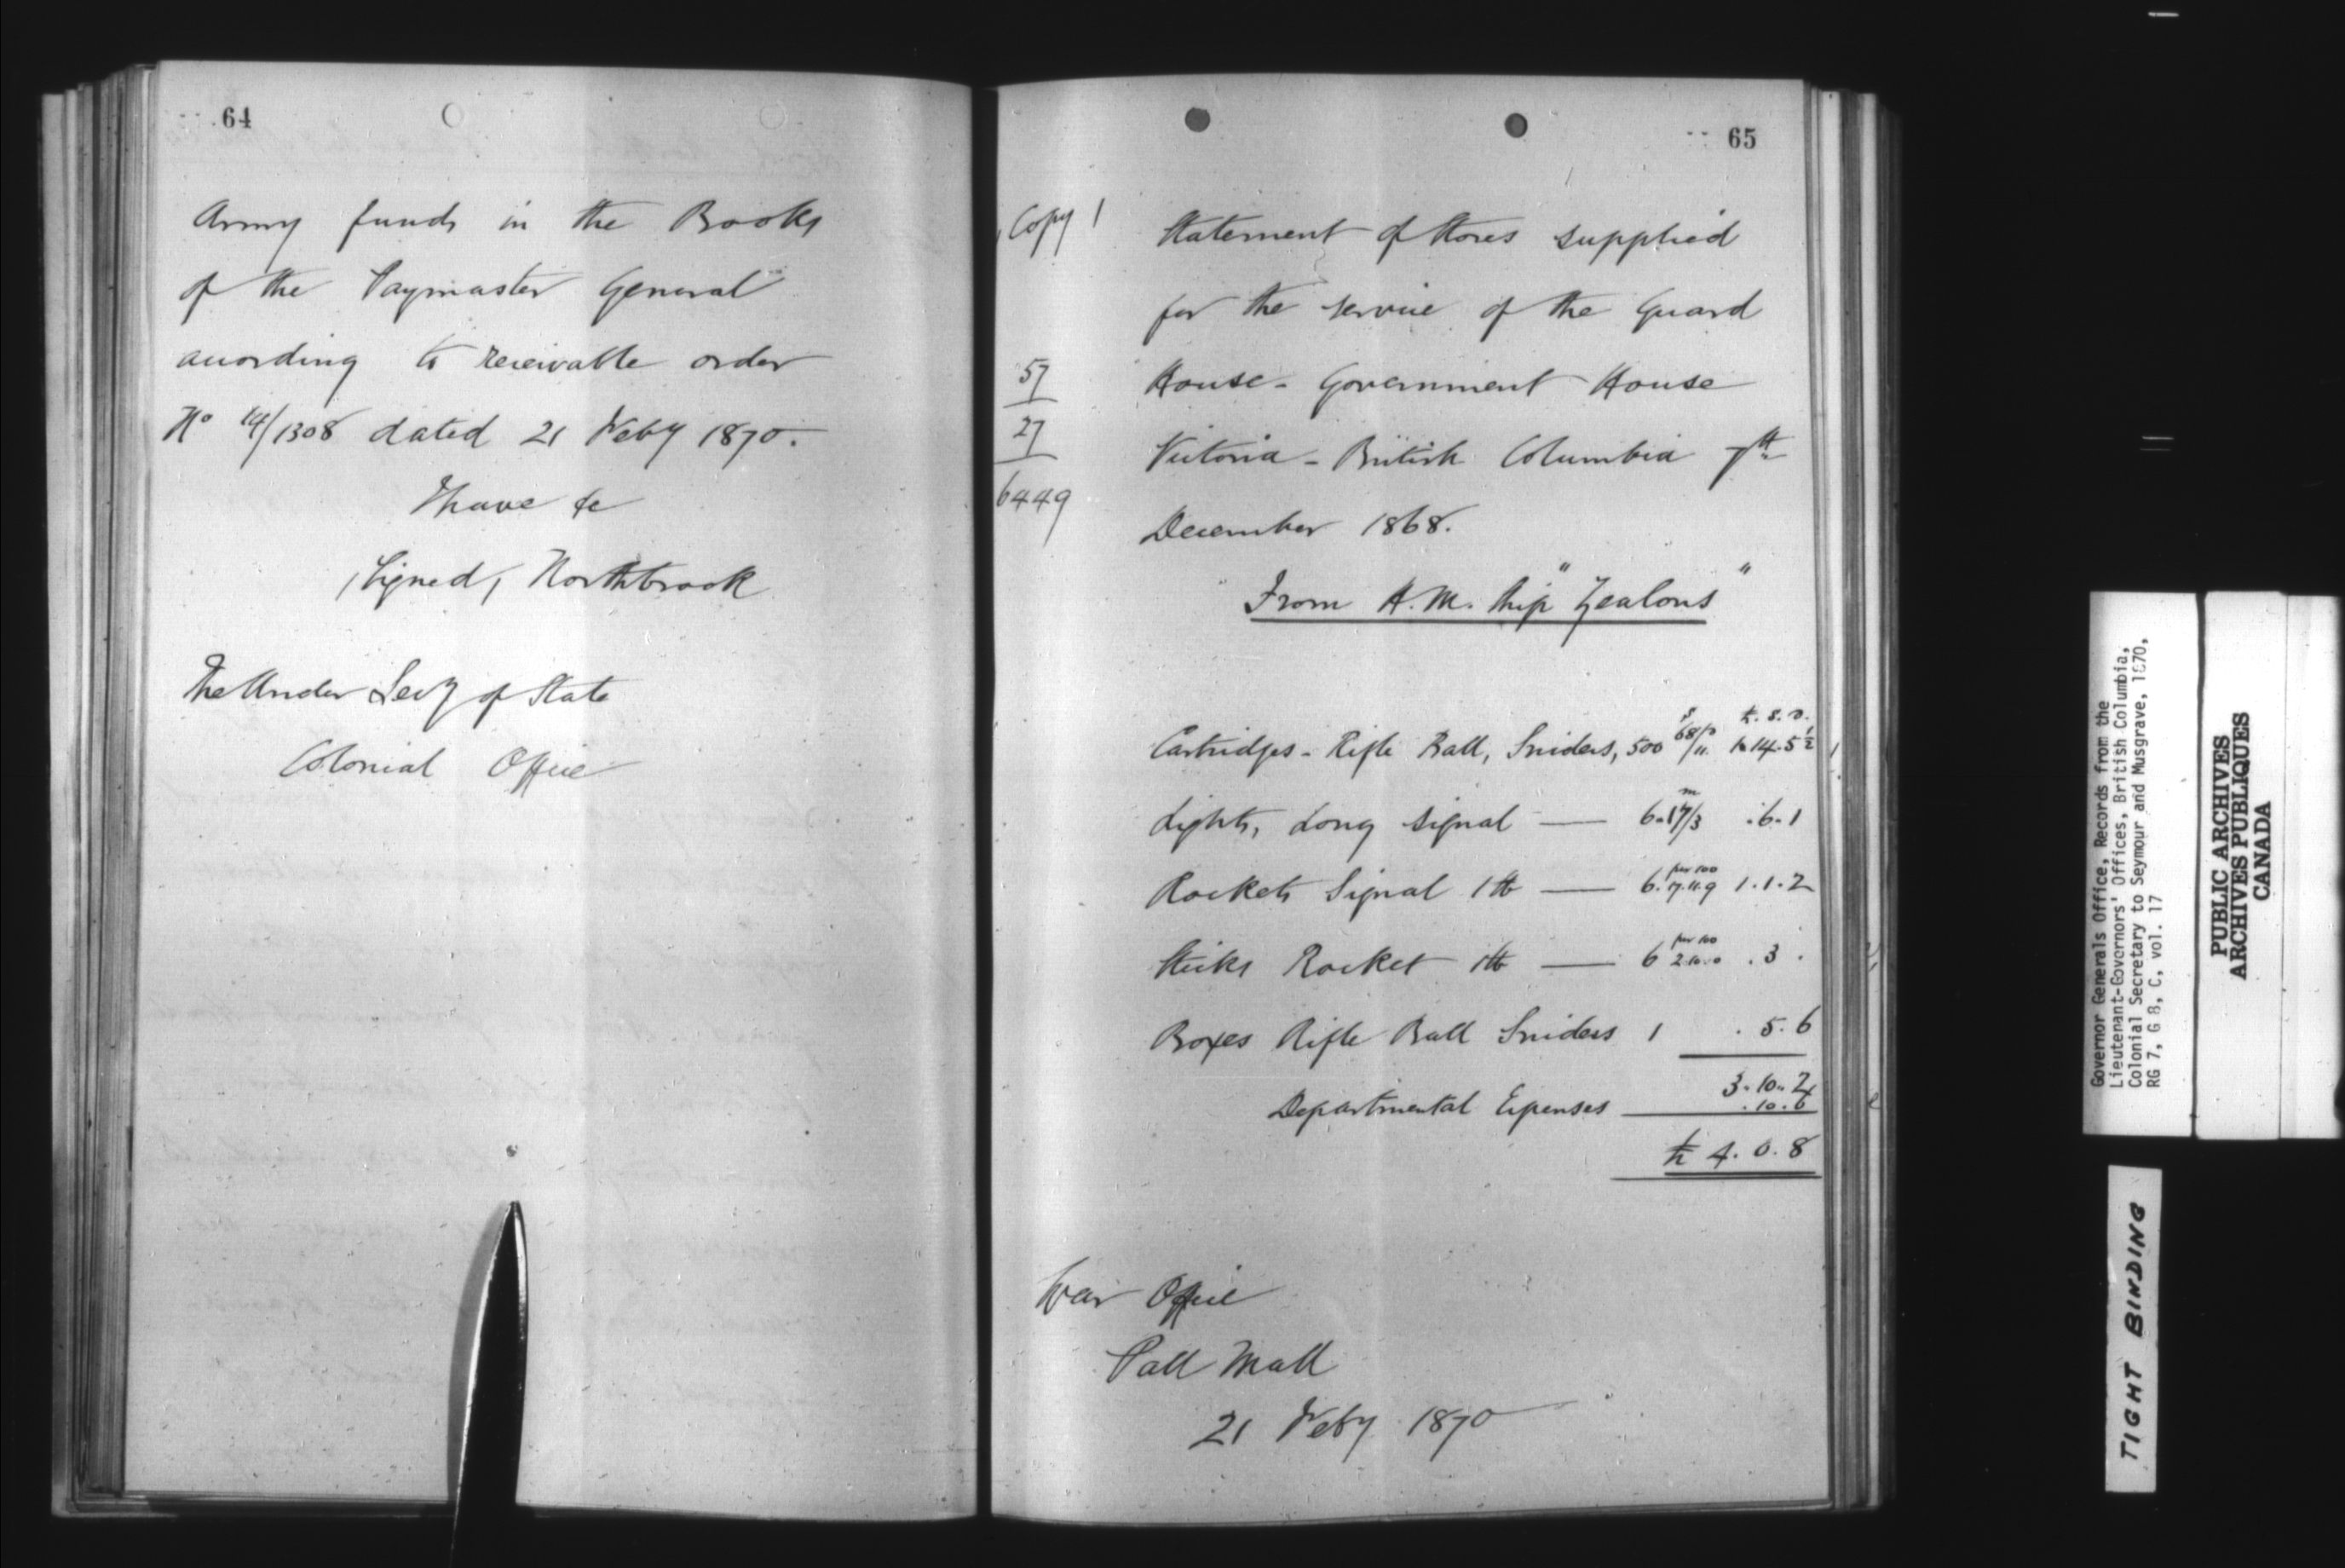 64
Army funds in the Books
of the Paymaster General
according to receivable order
No 14/1308 dated 21 Feby 1870.
I have &c
(Signed) Northbrook
The Under Secy of State
Colonial Office
65
Copy
57
27
6449
Statement of Stores supplied
for the service of the Guard
House - Government House
Victoria - British Columbia 7th
December 1868.
From H.M. Ship "Zealous"
£. s. D.
Cartridges - Rifle Ball, Sniders, 500 68/11 1.14.5½
Lights, Long Signal — 6 17/3 . 6. 1
per 100
Rockets Signal 1 lb — 6. 17.11.9 1. 1. 2
per 100
Sticks Rocket 1 lb — 6 2.10.0 . 3 .
Boxes Rifle Ball Sniders 1 . 5. 6
3. 10. 2
Departmental Expenses — . 10. 6
£ 4. 0. 8
War Office
Pall Mall
21 Feby 1870
Governor Generals Office, Records from the
Lieutenant-Governors' Offices, British Columbia,
Colonial Secretary to Seymour and Musgrave, 1870,
RG 7, G 8, C, vol. 17
PUBLIC ARCHIVES
ARCHIVES PUBLIQUES
CANADA
TIGHT BINDING